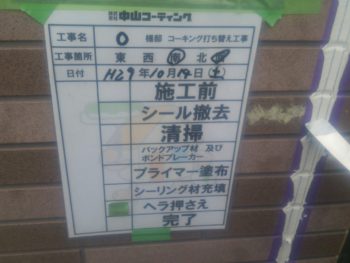 株式会社 中山コーティング
工事名 O 様邸 コーキング打ち替え工事
工事箇所 東 西 南 北
日付 H29年10月14日(土)
施工前
シール撤去
清掃
バックアップ材 及び
ボンドブレーカー
プライマー塗布
シーリング材充填
ヘラ押さえ
完了